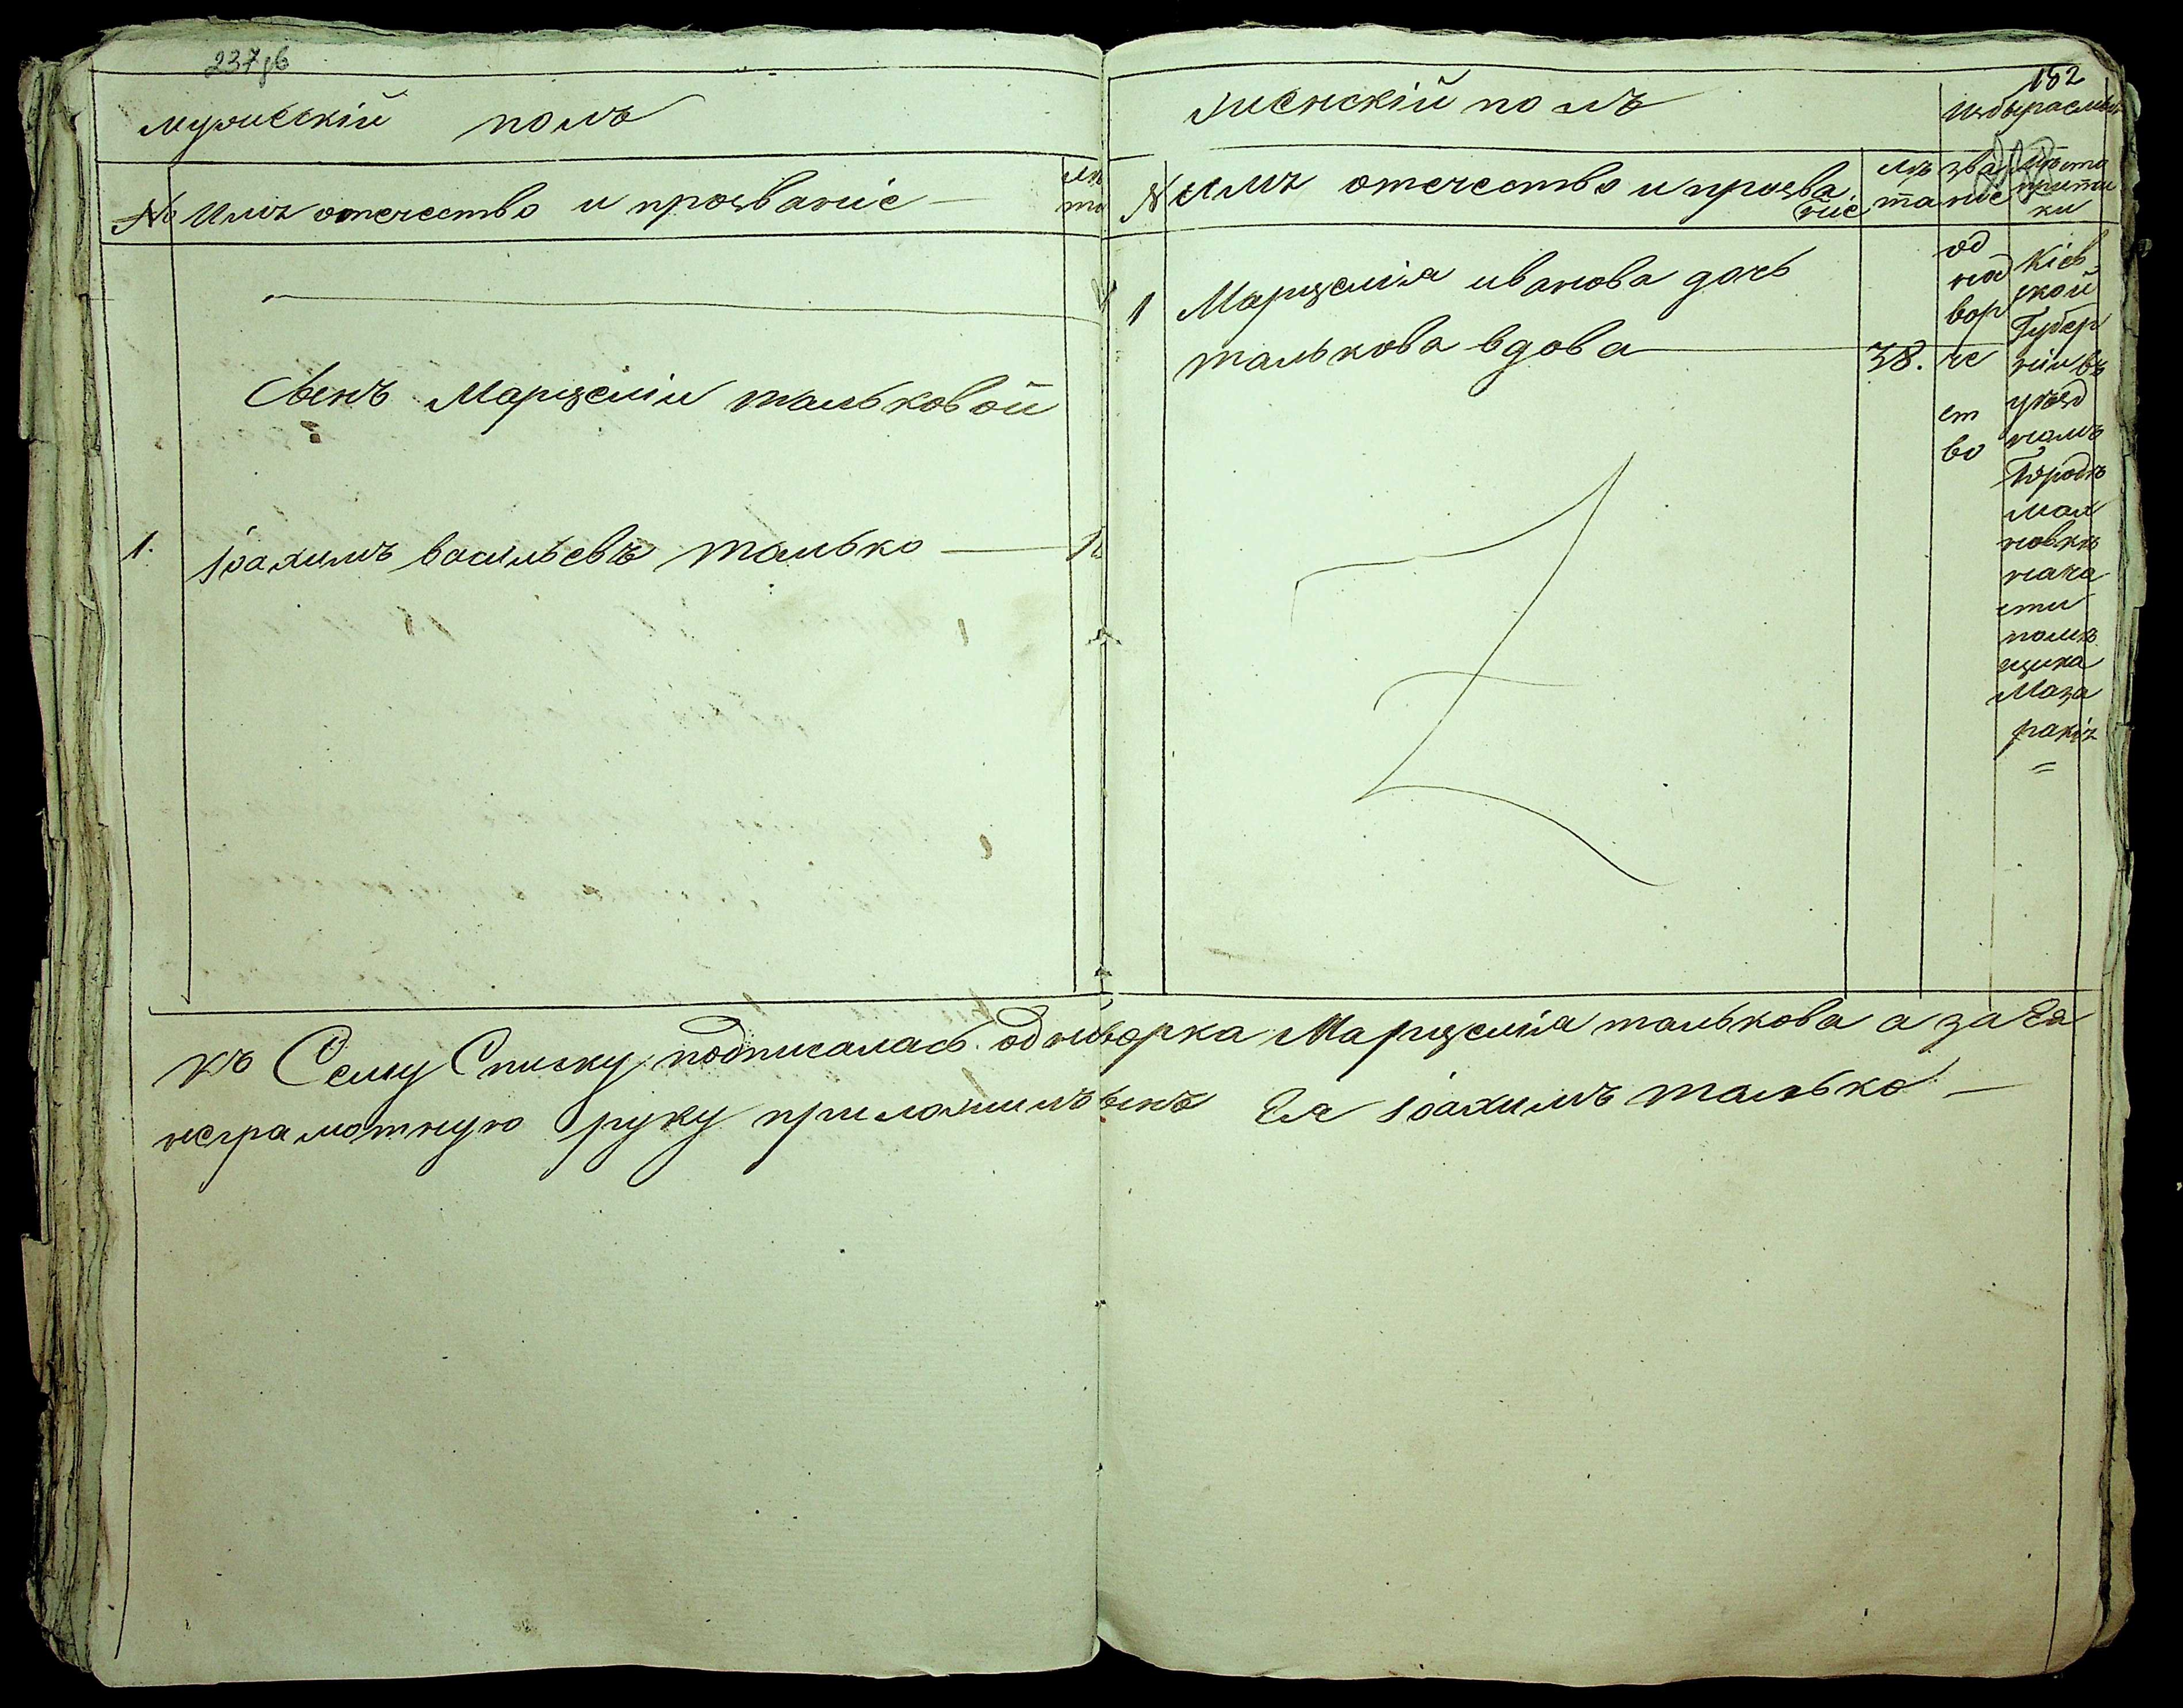 мужескій полъ
№ Имя отечество и прозваніе лѣ та
Сынъ Марцеліи тальковой
1. Іоахимъ васильевъ талько
182
женскій полъ
избыраемыя
№ Имя отечество и прозва ніе лѣ та зва ніе мѣста припи ки
1 Марцелія иванова дочь
талькова вдова 38.
од
нод
вор
че
ст
во
Кіев
ской
Губер
ніи въ
уѣзд
номъ
Городѣ
нача
сти
помѣ
щика
Маза
ракія
къ Сему Списку подписалась однодворка Марцелія талькова а за Ея
неграмотную руку приложилъ сынъ Ея Іоахимъ талько